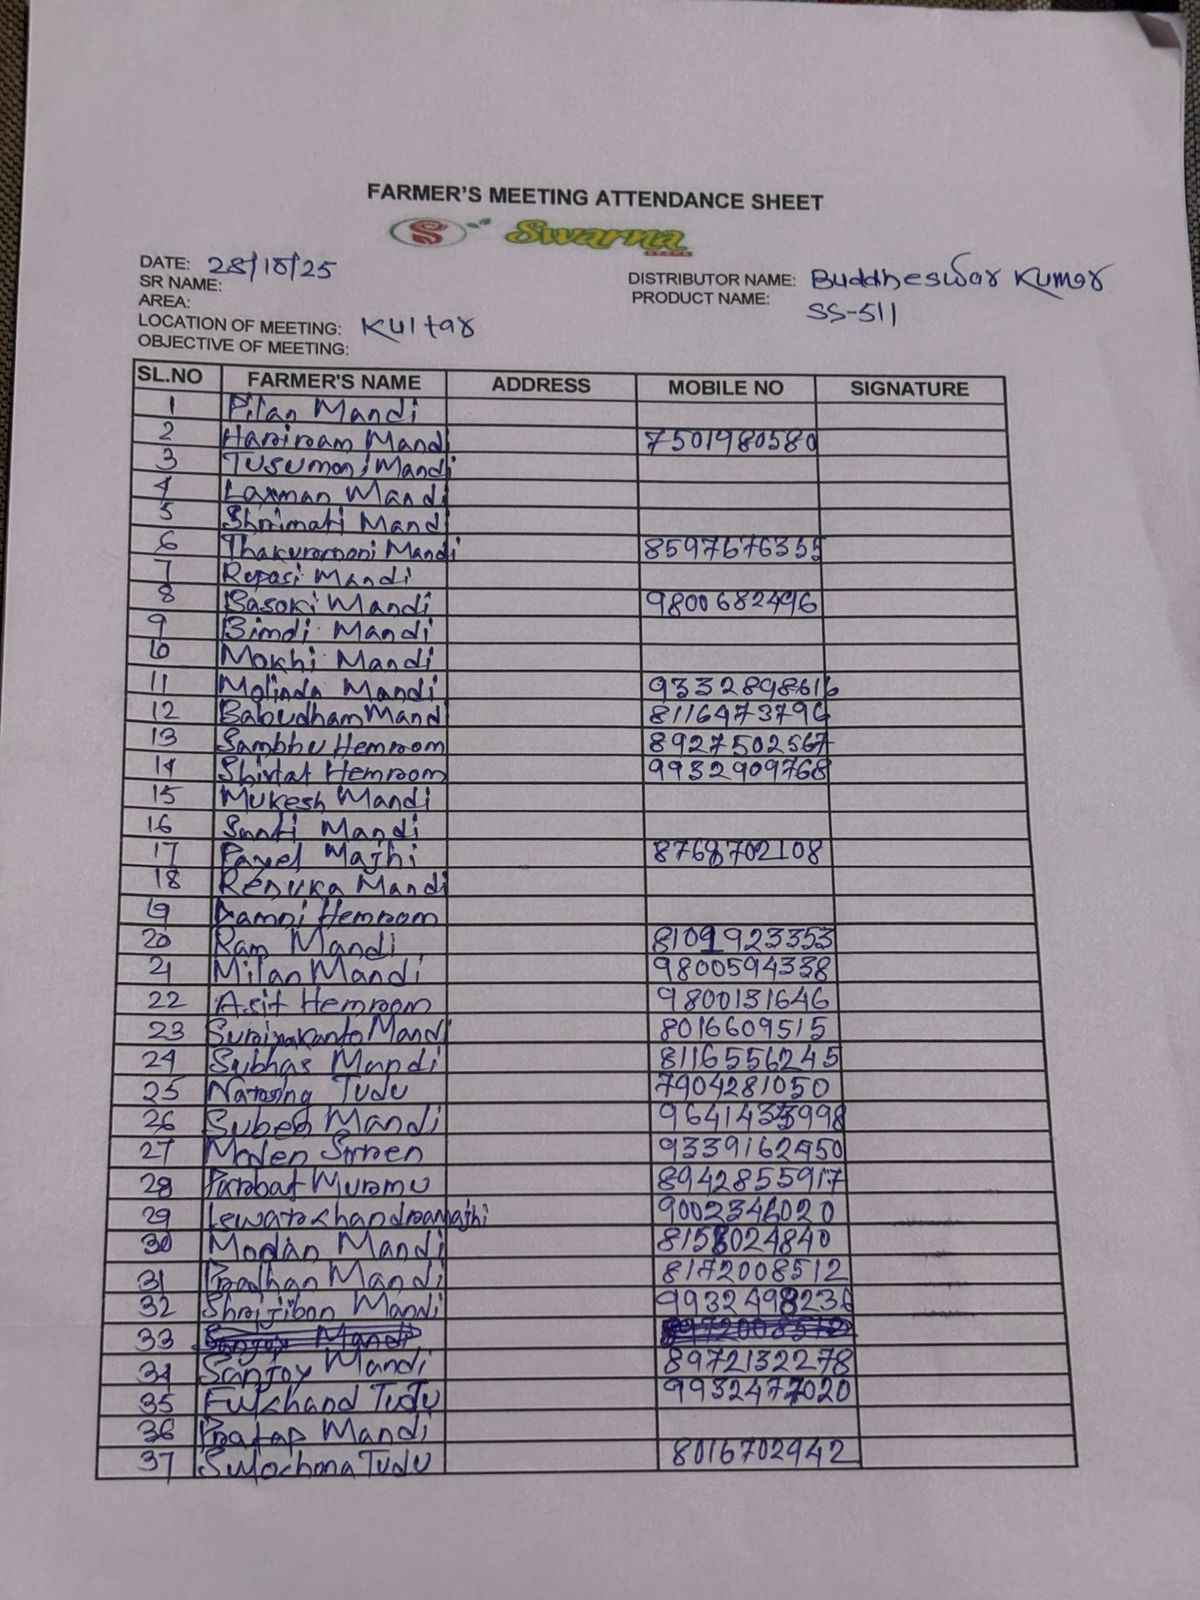 FARMER'S MEETING ATTENDANCE SHEET
S Swarna
DATE: 28/10/25
SR NAME:
AREA:
LOCATION OF MEETING: Kultar
OBJECTIVE OF MEETING:
DISTRIBUTOR NAME: Buddheswar Kumar
PRODUCT NAME: SS-511
SL.NO FARMER'S NAME ADDRESS MOBILE NO SIGNATURE
1 Pilan Mandi
2 Hariram Mandi 7501980580
3 Tusumoni Mandi
4 Laxman Mandi
5 Shrimati Mandi
6 Thakurmoni Mandi 8597676355
7 Rupasi Mandi
8 Basoki Mandi 9800682496
9 Bimdi Mandi
10 Mokhi Mandi
11 Malinda Mandi 9332898616
12 Babudham Mandi 8116473796
13 Sambhu Hemrom 8927502567
14 Hemrom 9932909768
15 Mukesh Mandi
16 Santi Mandi
17 Pavel Majhi 8768702108
18 Renuka Mandi
19 Hemrom
20 Ram Mandi 8101923353
21 Milan Mandi 9800594338
22 Asit Hemrom 9800131646
23 Mandi 8016609515
24 Subhas Mandi 8116556245
25 Tudu 7904281050
26 Mandi
27 Moden Soren 9339162450
28 Parabat Murmu 8942855917
29 9002346020
30 Modan Mandi 8158024840
31 Pradhan Mandi 8172008512
32 Shrijiban Mandi 9932498236
33
34 Sanjoy Mandi 8972132278
35 Fulchand Tudu 9932477020
36 Pratap Mandi
37 Sulochona Tudu 8016702942